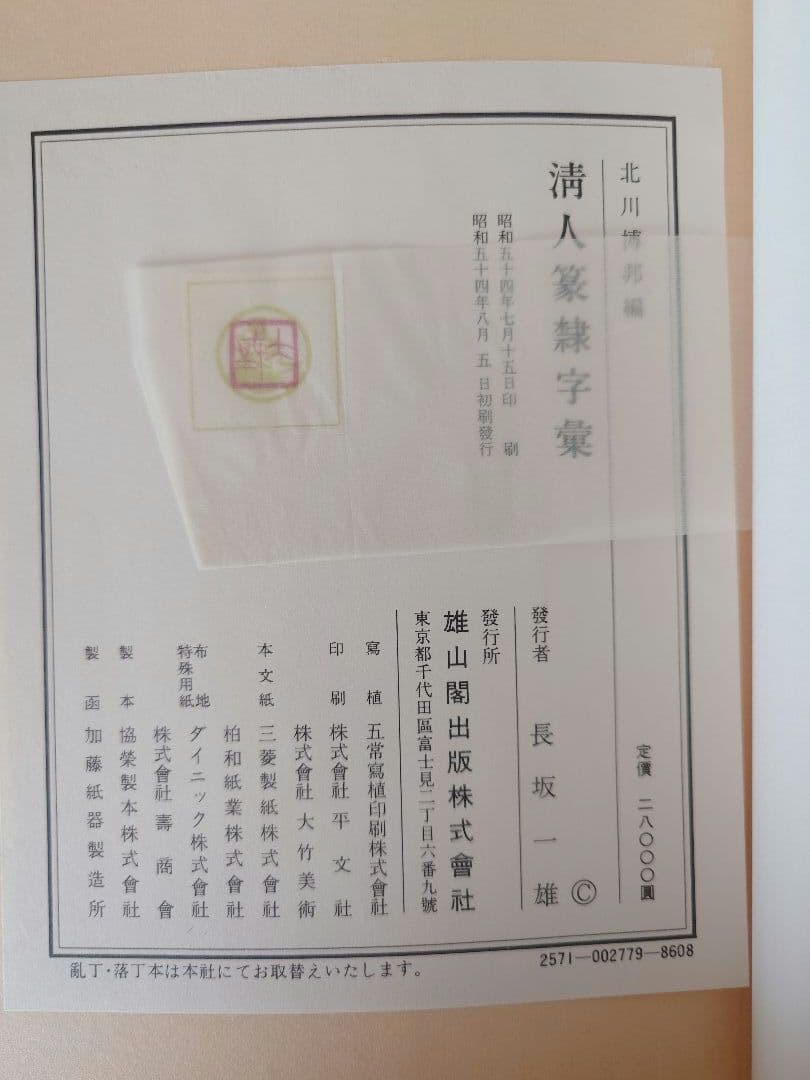 北川博邦編
定價 二八〇〇〇圓
淸人篆隸字彙
昭和五十四年七月十五日印刷
昭和五十四年八月五日初刷發行
發行者 長坂一雄 ©
發行所
雄山閣出版株式會社
東京都千代田區富士見二丁目六番九號
寫植 五常寫植印刷株式會社
印刷 株式會社平文社
株式會社大竹美術
本文紙 三菱製紙株式會社
柏和紙業株式會社
布地 ダイニック株式會社
特殊用紙 株式會社壽商會
製本 協榮製本株式會社
製函 加藤紙器製造所
2571—002779—8608
亂丁・落丁本は本社にてお取替えいたします。